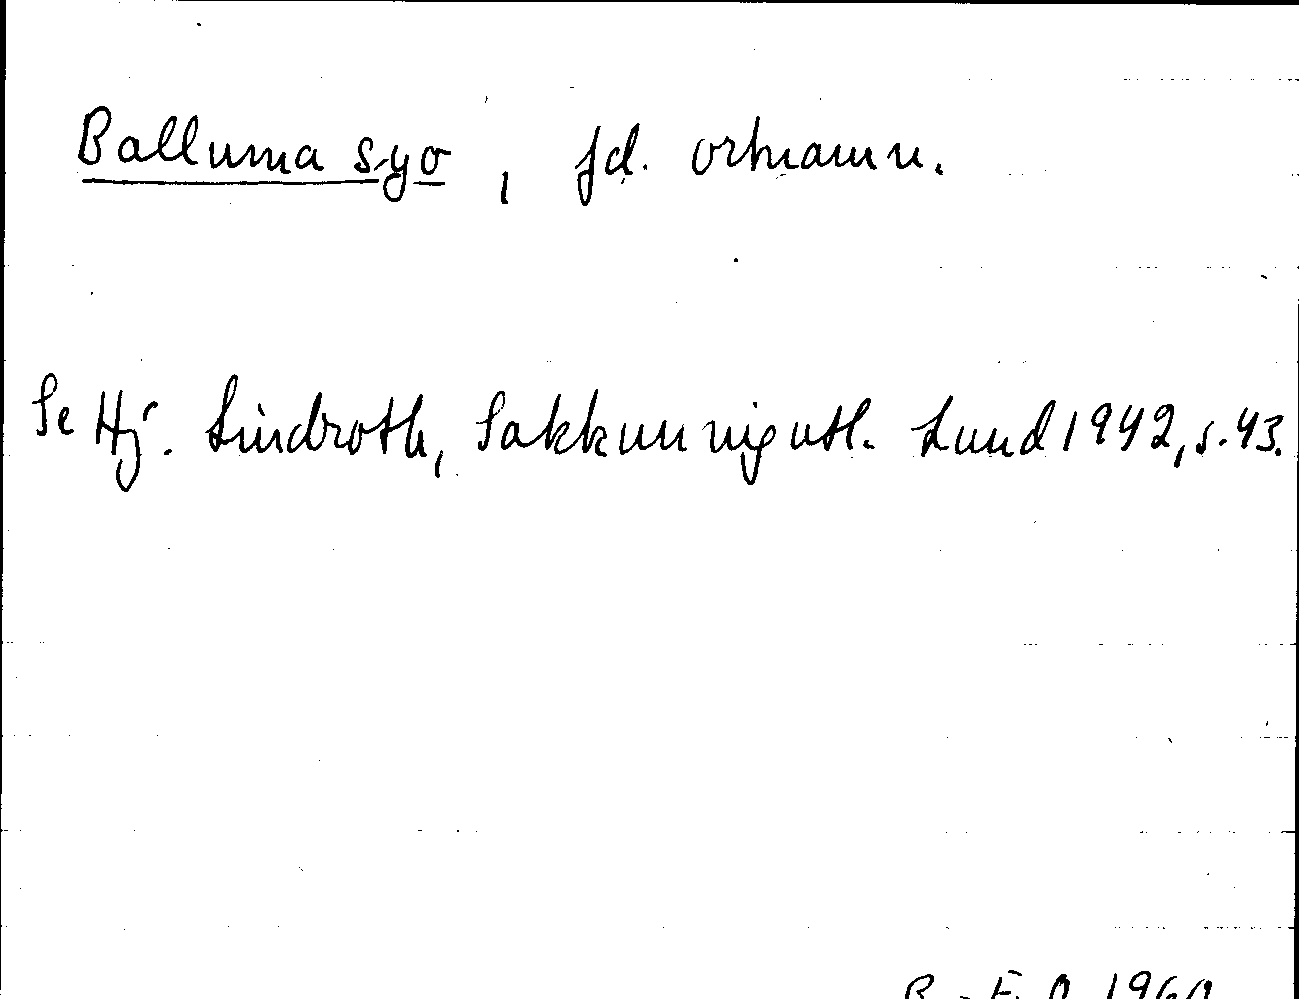 Balluma syo, fd. ortnamn.
Se Hj. Lindroth, Sakkunnigutl. Lund 1942, s. 43.
B.-E. O. 1960